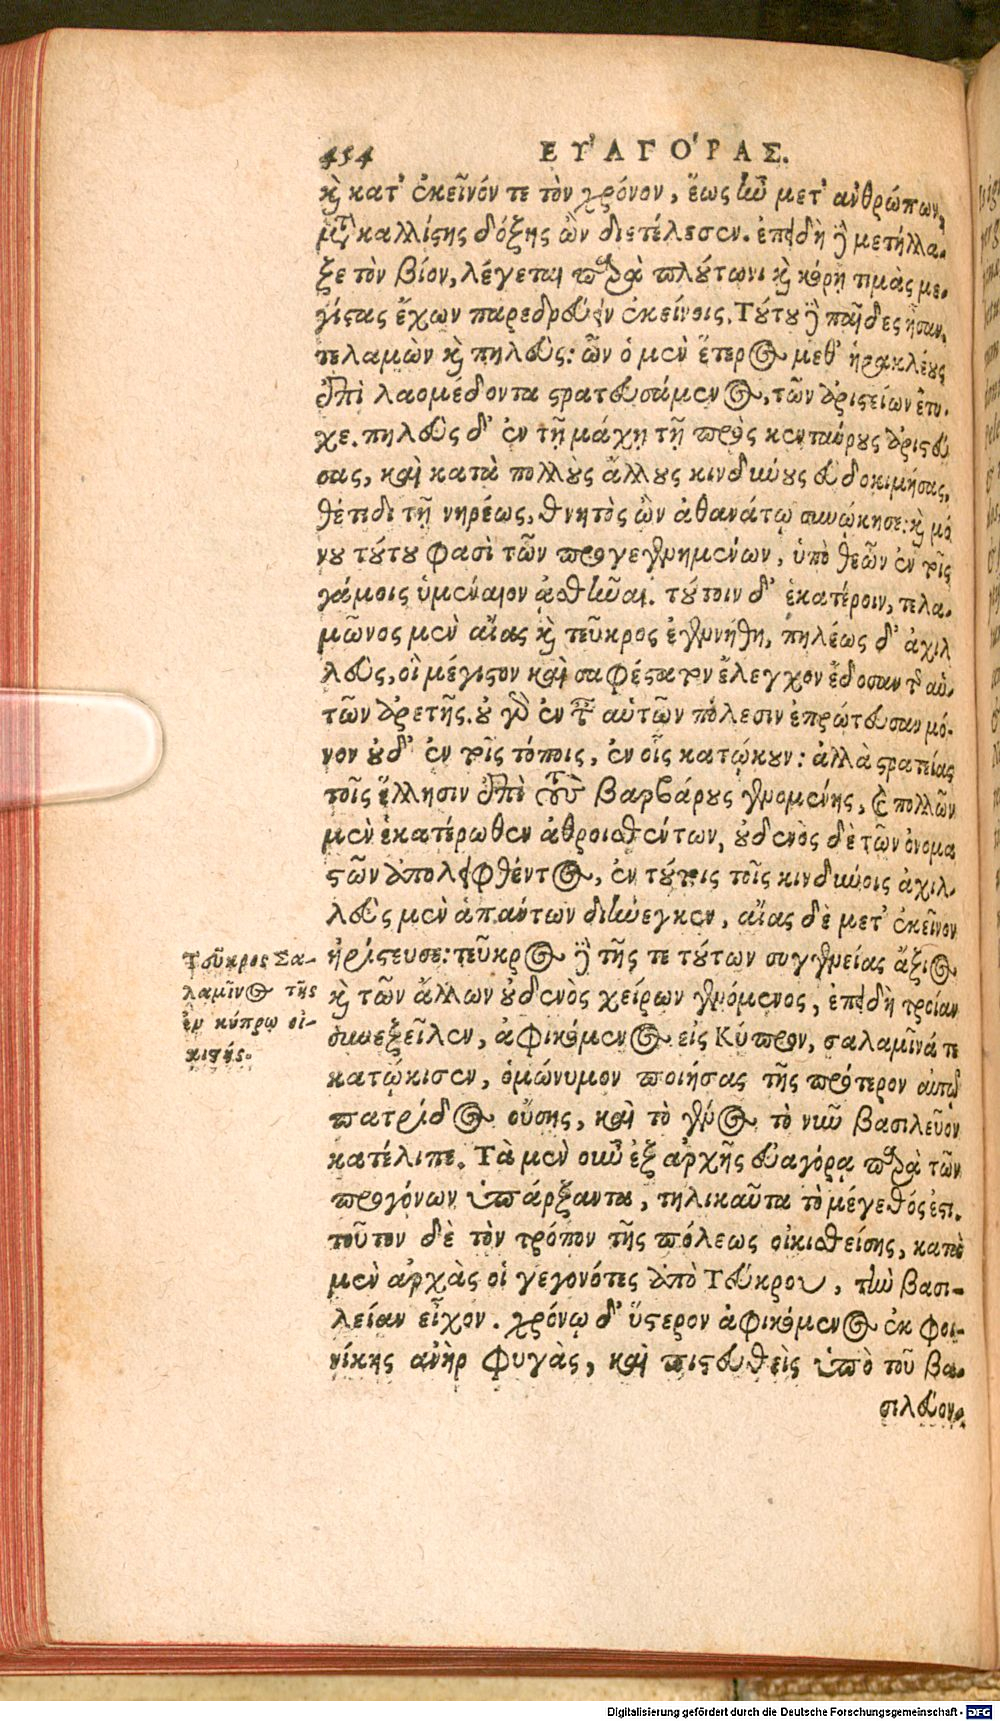 454 ΕΥ᾿ΑΓΟ΄ΡΑΣ.
καὶ κατ' ἐκεῖνόν τε τὸν χρόνον, ἕως ἦν μετ' ἀνθρώπων,
μετὰ καλλίστης δόξης ὢν διετέλεσεν. ἐπειδὴ δὲ μετήλλα-
ξε τὸν βίον, λέγεται παρὰ πλούτωνι καὶ κόρῃ τιμὰς με-
γίστας ἔχων παρεδρεύειν ἐκείνοις. Τούτου δὲ παῖδες ἦσαν,
τελαμὼν καὶ πηλεύς: ὧν ὁ μὲν ἕτερος μεθ' ἡρακλέους
ἐπὶ λαομέδοντα στρατευσάμενος, τῶν ἀριστείων ἔτυ-
χε. πηλεὺς δ' ἐν τῇ μάχῃ τῇ πρὸς κενταύρους ἀριστεύ
σας, καὶ κατὰ πολλοὺς ἄλλους κινδύνους εὐδοκιμήσας,
θέτιδι τῇ νηρέως, θνητὸς ὢν ἀθανάτῳ συνῴκησε: καὶ μό
νου τούτου φασὶ τῶν προγεγενημένων, ὑπὸ θεῶν ἐν τοῖς
γάμοις ὑμέναιον ᾀσθῆναι. τούτοιν δ' ἑκατέροιν, τελα-
μῶνος μὲν αἴας καὶ τεῦκρος ἐγενήθη, πηλέως δ' ἀχιλ
λεύς, οἳ μέγιστον καὶ σαφέστατον ἔλεγχον ἔδοσαν τῆς αὑ-
τῶν ἀρετῆς. οὐ γὰρ ἐν ταῖς αὑτῶν πόλεσιν ἐπρώτευσαν μό-
νον οὐδ' ἐν τοῖς τόποις, ἐν οἷς κατῴκουν: ἀλλὰ στρατείας
τοῖς ἕλλησιν ἐπὶ τοὺς βαρβάρους γενομένης, καὶ πολλῶν
μὲν ἑκατέρωθεν ἀθροισθέντων, οὐδενὸς δὲ τῶν ὀνομα
στῶν ἀπολειφθέντος, ἐν τούτοις τοῖς κινδύνοις ἀχιλ-
λεὺς μὲν ἁπάντων διήνεγκεν, αἴας δὲ μετ' ἐκεῖνον
ἠρίστευσε: τεῦκρος δὲ τῆς τε τούτων συγγενείας ἄξιος
καὶ τῶν ἄλλων οὐδενὸς χείρων γενόμενος, ἐπειδὴ τροίαν
συνεξεῖλεν, ἀφικόμενος εἰς Κύπρον, σαλαμῖνά τε
κατῴκισεν, ὁμώνυμον ποιήσας τῆς πρότερον αὐτῷ
πατρίδος οὔσης, καὶ τὸ γένος τὸ νῦν βασιλεῦον
κατέλιπε. Τὰ μὲν οὖν ἐξ ἀρχῆς εὐαγόρᾳ παρὰ τῶν
προγόνων ὑπάρξαντα, τηλικαῦτα τὸ μέγεθός ἐστι.
τοῦτον δὲ τὸν τρόπον τῆς πόλεως οἰκισθείσης, κατὰ
μὲν ἀρχὰς οἱ γεγονότες ἀπὸ Τεύκρου, τὴν βασι-
λείαν εἶχον. χρόνῳ δ' ὕστερον ἀφικόμενος ἐκ φοι-
νίκης ἀνὴρ φυγὰς, καὶ πιστευθεὶς ὑπὸ τοῦ βα-
σιλεύον-
Τεῦκρος Σα-
λαμῖνος τῆς
ἐν κύπρῳ οἰ-
κιστής.
Digitalisierung gefördert durch die Deutsche Forschungsgemeinschaft - DFG